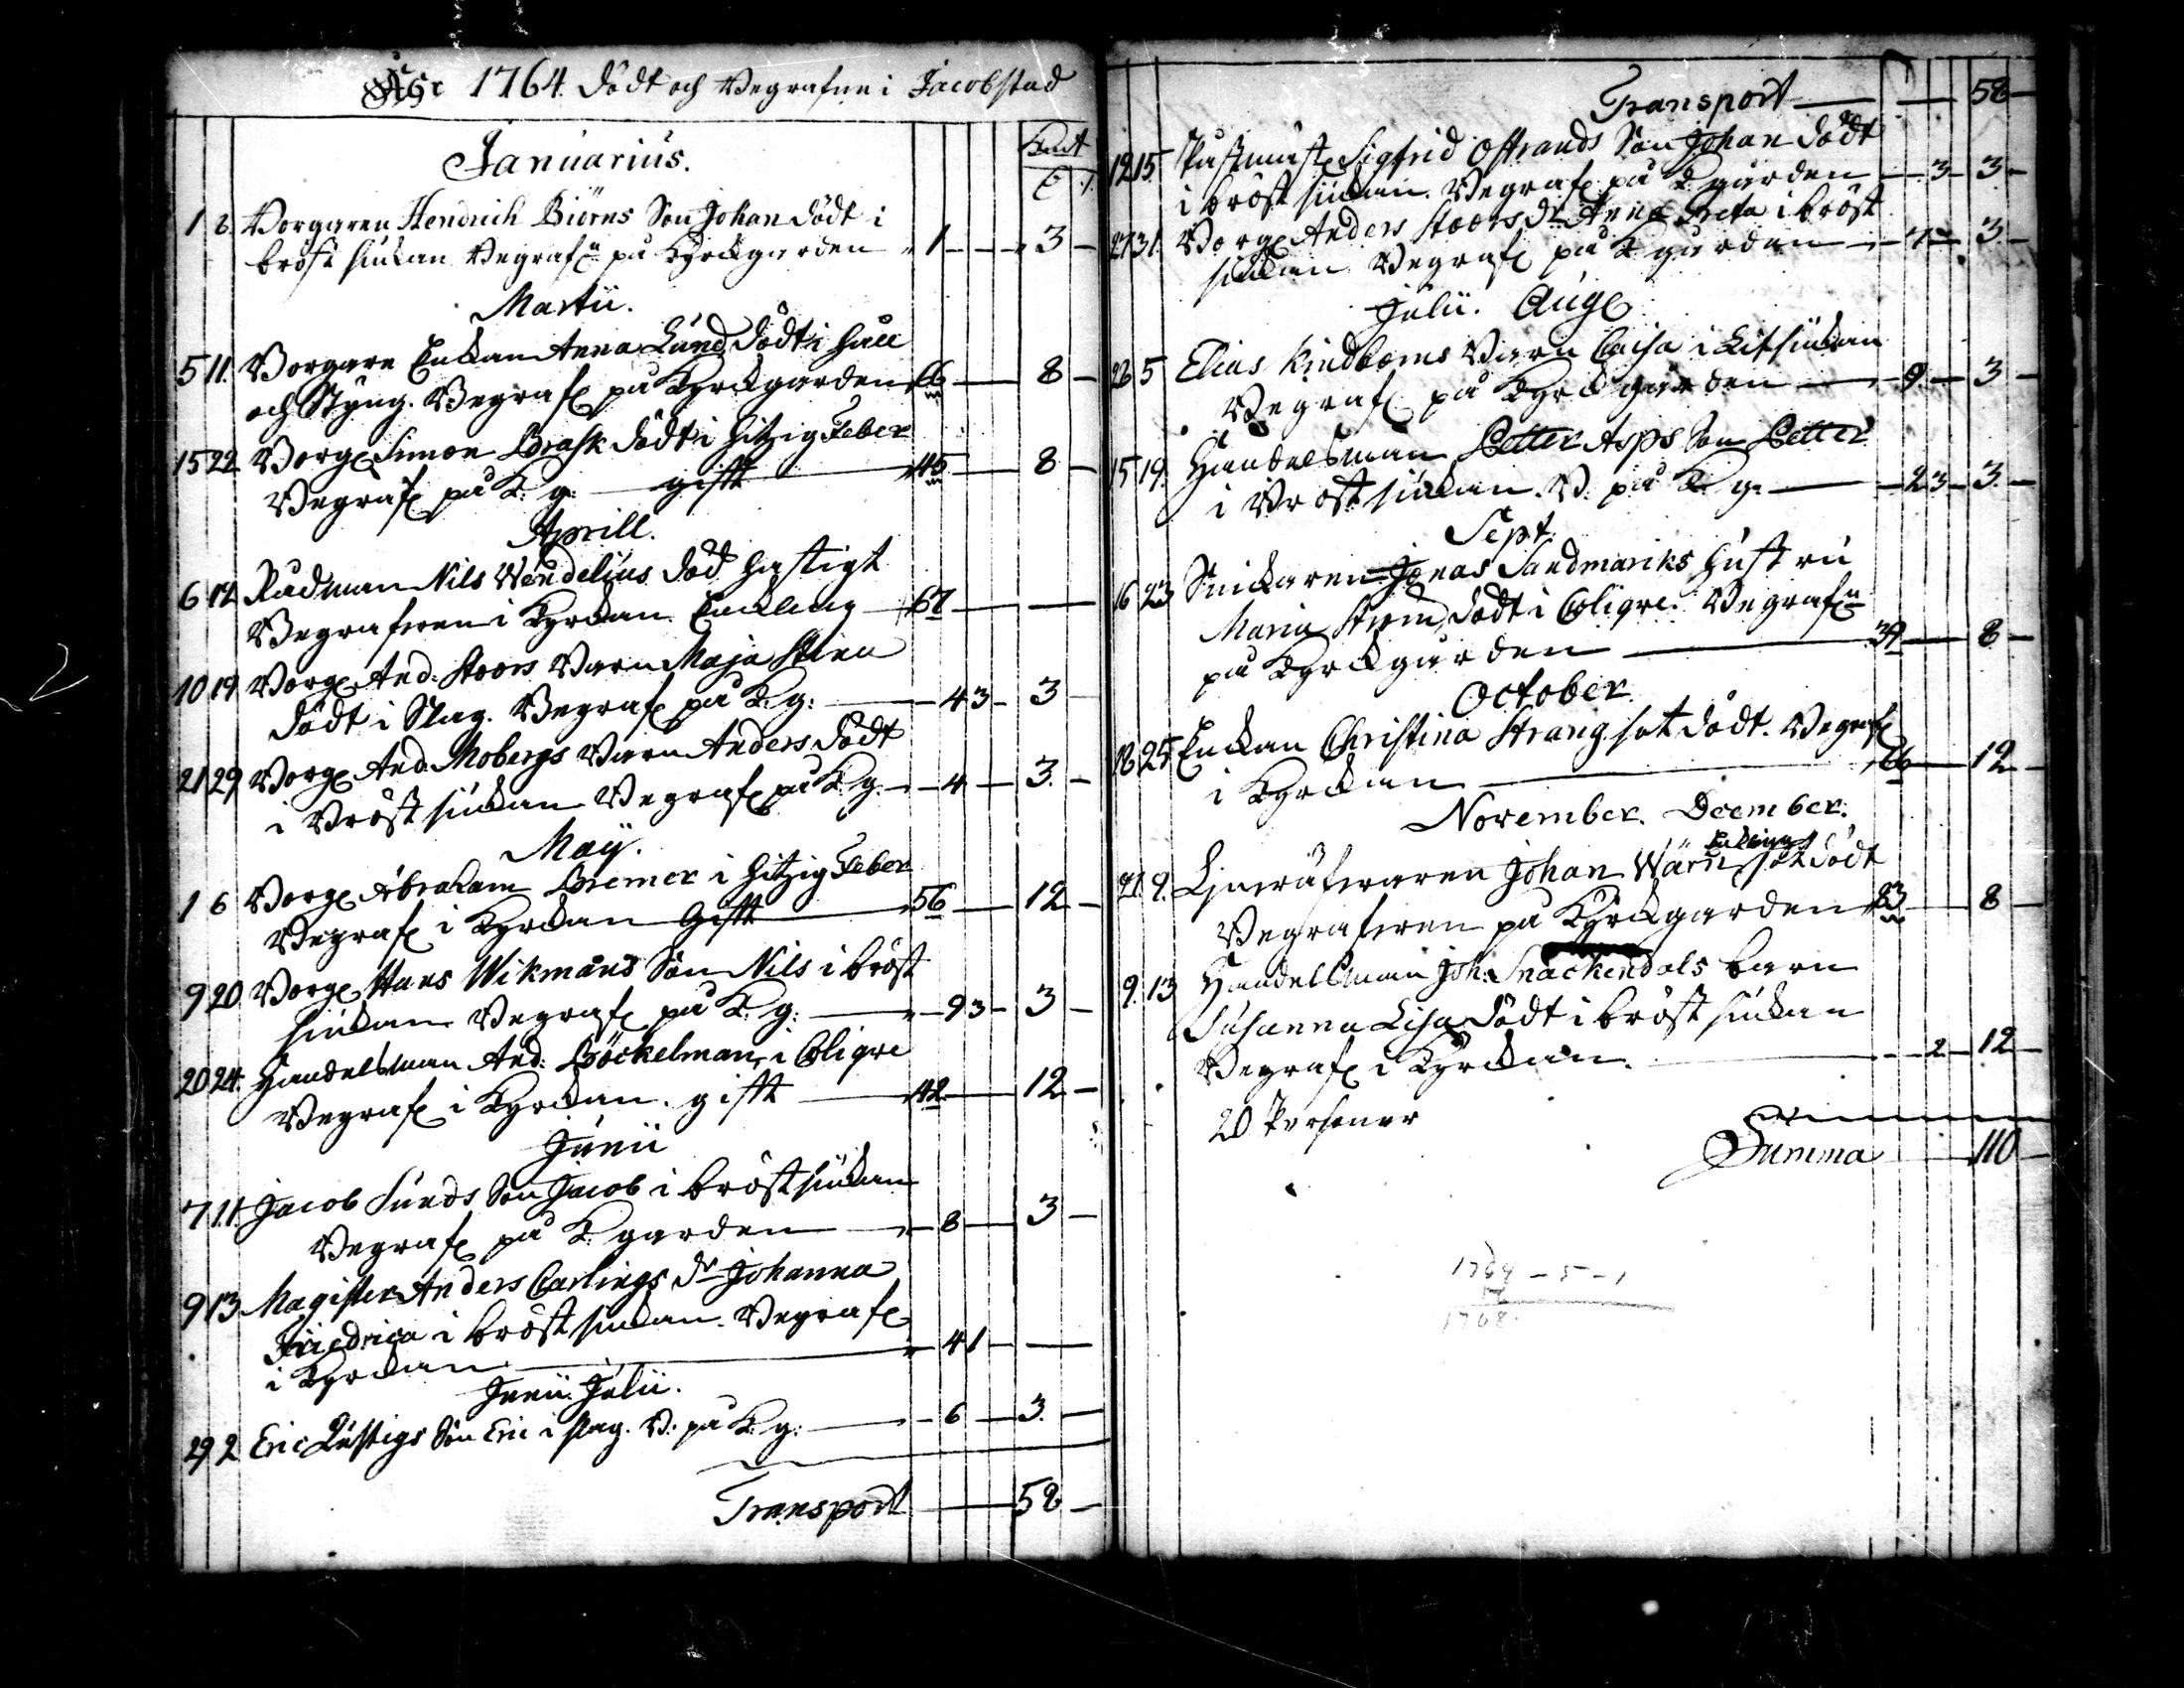 År 1764 Dödt och Begrafne i Jacobstad
Januarius.
1 8. Borgaren Hendrich Biörns Son Johan Dödt i
bröst siukan Begrafn på Kyrckgården 1 3
Martii.
5 11. Borgare Enckan Anna Lund, Dödt i håll
och Styng. Begraf på Kyrckgården 66 8
15 22 Borg Simon Brask Dödt i hitzig Feber
Begraf på K. g: gift 45 8
Aprill.
6 12 Rådman Nils Wendelius Död hastigt
Begrafwen i Kyrckan Enckling 67
10 19 Borg And: Stoors Barn Maja Stina
Dödt i Slag. Begraf på K: g: 4 3 3
21 29 Borg And. Mobergs Barn Anders Dödt
i Bröst siukan Begraf på K: g. 4 3.
Maij.
1 6 Borg Abraham Bremer i hitzig Feber
Begraf i Kyrckan Gift 56 12
9 20 Borg Hans Wikmans Son Nils i bröst
siukan Begraf på K: g: 9 3 3
20 24. Handelsman And: Böckelman, i Colique
Begraf i Kyrckan. gift 42 12
Junii
7 11 Jacob Lunds Son Jacob i bröst siukan
Begraf på K: garden 8 3
9 13 Magister Anders Carlings Dr Johanna
Friedrica i bröst siukan. Begraf
i Kyrckan 4 1
Junii. Julii.
29 2 Eric Lustigs Son Eric i slag. B. på K. g: 6 3.
Transport 58
Transport 58
12 15. Sigfrid Östrands Son Johan Dödt
i bröst siukan. Begraf på K gården 3 3
27 31. Borg Anders Stoors Dr Anna Greta i bröst
siukan Begraf på K gården 7 3.
Julii. Aug
28 5 Elias Kindboms Barn Caisa i Litsiukan
Begraf på Kyrckgården 9 3
15 19. Handelsman Petter Asps Son Petter
i Bröst siukan. B. på K g. 2 3 3.
Sept.
16 23 Snickaren Jonas Sandmarks Hustru
Maria Ström, Dödt i Colique. Begrafn
på Kyrckgården 39 8
October
18 25 Enckan Christina Strang sot Dödt. Begraf
i Kyrckan 66 12
November. December.
9. Johan Wärn, sot Dödt
Begrafwen på Kyrckgården 83 8
9. 13 Handelsman Joh. Snäckendals barn
Susanna Lisa Dödt i bröst siukan
Begraf i Kyrckan. 2 12
20 Personer
Summa 110
1764 - 5 - 1
1768